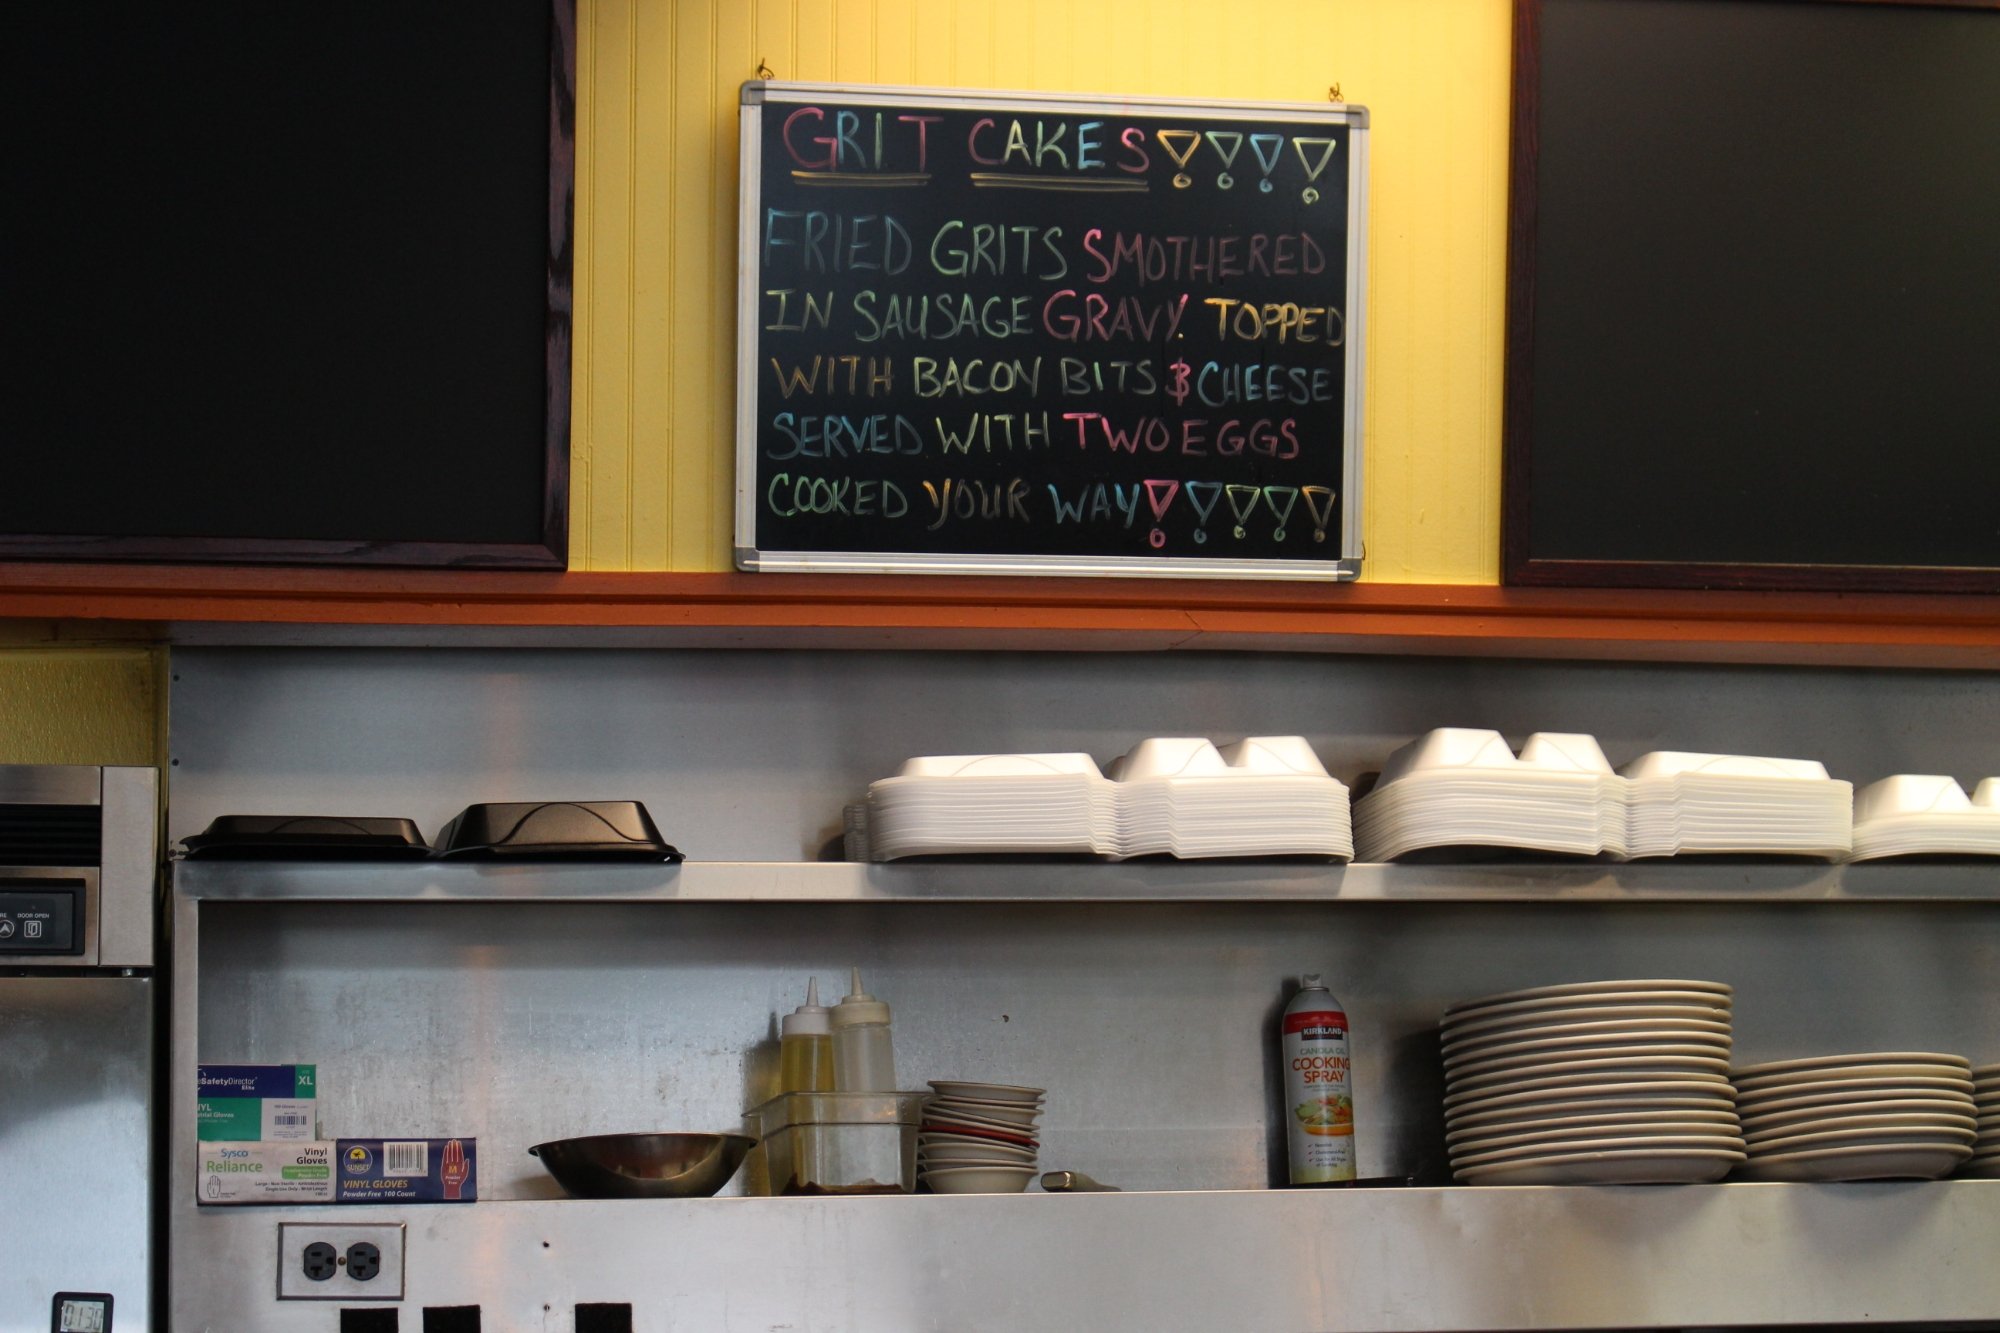 GRIT CAKES!!!!
FRIED GRITS SMOTHERED
IN SAUSAGE GRAVY. TOPPED
WITH BACON BITS & CHEESE
SERVED WITH TWO EGGS
COOKED YOUR WAY!!!!!
DOOR OPEN
SafetyDirector
Elite
XL
Gloves
Sysco
Reliance
Vinyl
Gloves
SUNSET
VINYL GLOVES
Powder Free 100 Count
M
Powder
Free
KIRKLAND
CANOLA OIL
COOKING
SPRAY
0:130